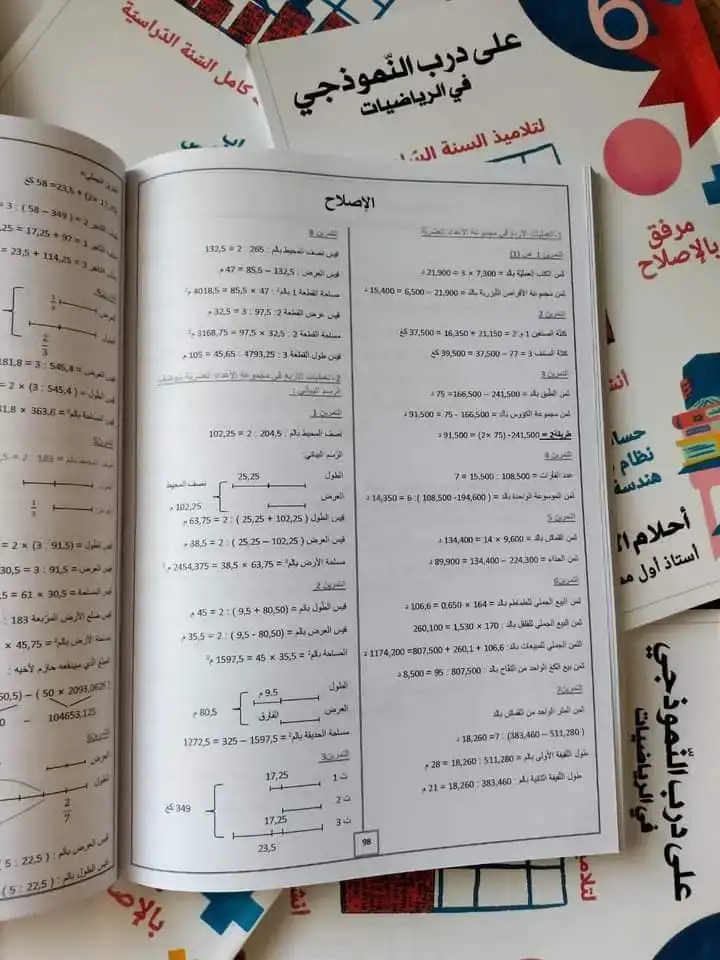 كامل السّنة الدّراسيّة
6
على درب النّموذجي
في الرياضيات
لتلاميذ السنة
مرفق
بالإصلاح
حساب
نظام
هندسة
أستاذ أول
على درب النّموذجي
في الرياضيات
الإصلاح
1-العمليات الأربع في مجموعة الأعداد العشرية
التمرين 1
ثمن الكتب العمليّة بالد = 7,300 × 3 = 21,900 د
ثمن مجموعة الأقراص الليزرية بالد = 21,900 – 6,500 = 15,400 د
التمرين 2
كتلة الصندوقين 1 و 2 = 21,150 + 16,350 = 37,500 كغ
كتلة الصندوق 3 = 77 – 37,500 = 39,500 كغ
التمرين 3
ثمن الطبق بالد = 241,500 – 166,500= 75 د
ثمن مجموعة الكؤوس بالد = 166,500 - 75 = 91,500 د
طريقة2 = 241,500- (75 ×2) = 91,500 د
التمرين 4
عدد الفترات = 108,500 : 15,500 = 7
ثمن الموسوعة الواحدة بالد = ( 194,600- 108,500 ): 6 = 14,350 د
التمرين 5
ثمن القمصان بالد = 9,600 × 14 = 134,400 د
ثمن الحذاء = 224,300 – 134,400 = 89,900 د
التمرين6
ثمن البيع الجملي للطماطم بالد = 164 × 0,650 = 106,6 د
ثمن البيع الجملي للفلفل بالد : 170 × 1,530 = 260,100
الثمن الجملي للمبيعات بالد : 106,6 + 260,1 +807,500 = 1174,200 د
ثمن بيع الكغ الواحد من التفاح بالد : 807,500 : 95 = 8,500 د
التمرين7
ثمن المتر الواحد من القماش بالد
( 511,280 – 383,460) :7 = 18,260 د
طول اللفيفة الأولى بالم = 511,280 : 18,260 = 28 م
طول اللفيفة الثانية بالم = 383,460 : 18,260 = 21 م
التمرين 8
قيس نصف المحيط بالم : 265 : 2 = 132,5
قيس العرض : 132,5 – 85,5 = 47 م
مساحة القطعة 1 بالم² : 47 × 85,5 = 4018,5 م²
قيس عرض القطعة 2 : 97,5 : 3 = 32,5 م
مساحة القطعة 2 : 32,5 × 97,5 = 3168,75 م²
قيس طول القطعة 3 : 4793,25 : 45,65 = 105 م
2-العمليات الأربع في مجموعة الأعداد العشرية بتوظيف
الرسم البياني :
التمرين 1
نصف المحيط بالم : 204,5 : 2 = 102,25
الرّسم البياني:
الطول
25,25
نصف المحيط
العرض
102,25 م
قيس الطول ( 102,25 + 25,25 ) : 2 = 63,75 م
قيس العرض ( 102,25 – 25,25 ) : 2 = 38,5 م
مساحة الأرض بالم² = 63,75 × 38,5 = 2454,375 م²
التمرين 2
قيس الطول بالم = (80,50 + 9,5 ) : 2 = 45 م
قيس العرض بالم = (80,50 - 9,5 ) : 2 = 35,5 م
المساحة بالم² = 35,5 × 45 = 1597,5 م²
الطول
9,5 م
80,5 م
العرض
الفارق:
مساحة الحديقة بالم² = 1597,5 – 325 = 1272,5
التمرين3
17,25
ت 1
ت 2
349 كغ
17,25
ت 3
23,5
98
17,25 ×2) + 23,5= 58 كغ
2 = ( 349 – 58 ) : 3
1 = 97 + 17,25
114,25 + 23,5 =
1/3
العرض
الطول
2/3
قيس العرض = 545,4 : 3 = 181,8
قيس الطول = (545,4 : 3) × 2 =
قيس المساحة بالم² = 363,6 × 181,8
1/3
قيس الطول = (91,5 : 3) × 2 =
قيس العرض = 91,5 : 3 = 30,5
قيس المساحة = 30,5 × 61
قيس ضلع الأرض المربّعة 183 :
مساحة الأرض بالم² = 45,75 ×
104653,125
العرض
الطول
2/7
قيس العرض بالم : ( 22,5 : 5 )
قيس الطول بالم : ( 22,5 : 5 )